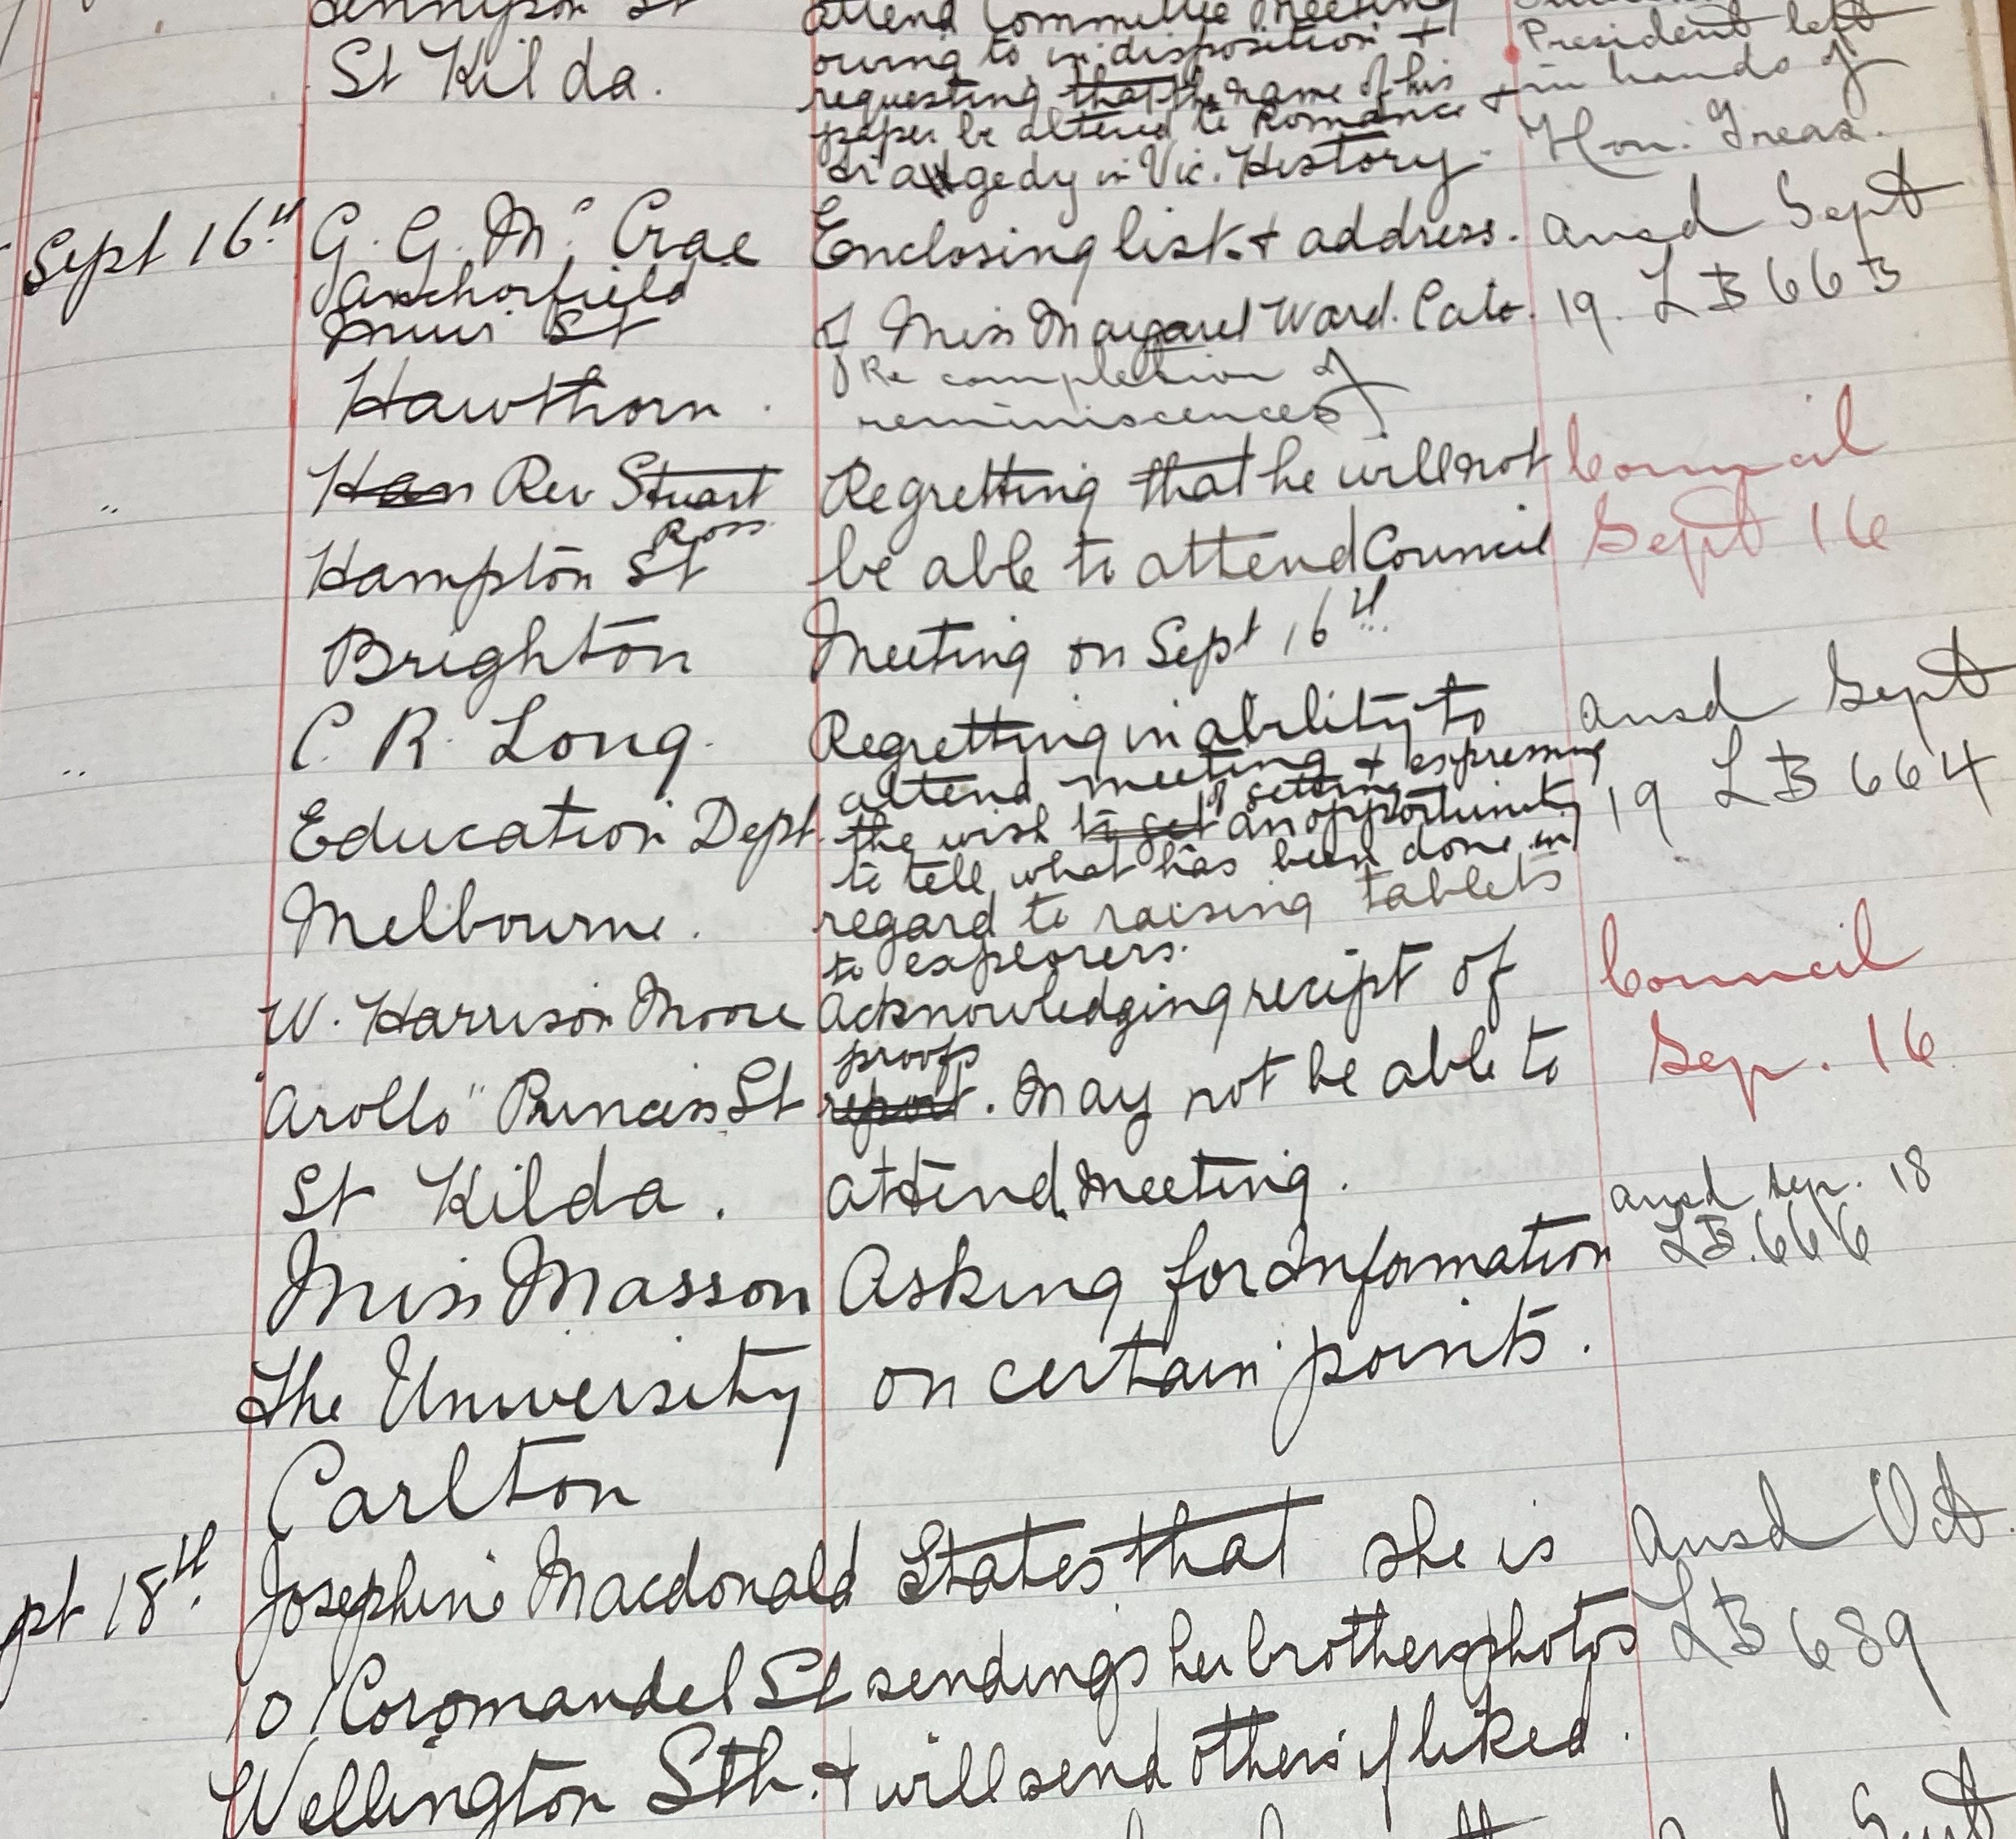 Tennyson St
attend Committee Meeting
St Kilda.
owing to indisposition +
President left
requesting that the name of his
in hands of
paper be altered to Romance +
Hon. Treas.
tragedy in Vic. History.
Sept 16th G. G. McCrae Enclosing list + address. ansd Sept
Anchorfield
Muir St of Miss Margaret Ward. Cato. 19. LB 663
Hawthorn. Re completion of
reminiscences
" Han Rev Stuart Regretting that he will not Council
Ross
Hampton St be able to attend Council Sept 16
Brighton Meeting on Sept 16th
" C. R. Long. Regretting inability to ansd Sept
attend meeting + expressing
of getting
Education Dept. the wish to get an opportunity 19 LB 664
to tell what has been done in
Melbourne. regard to raising tablets
to explorers.
W. Harrison Moore Acknowledging receipt of Council
proofs
Arollo" Princess St report. May not be able to Sep. 16
St Kilda. attend meeting. ansd Sep. 18
Miss Masson Asking for information LB. 666
The University on certain points.
Carlton
pt 18th. Josephine Macdonald States that she is ansd Oct.
10 Coromandel St sendings her brothers photos LB 689
Wellington Sth. + will send others if liked.